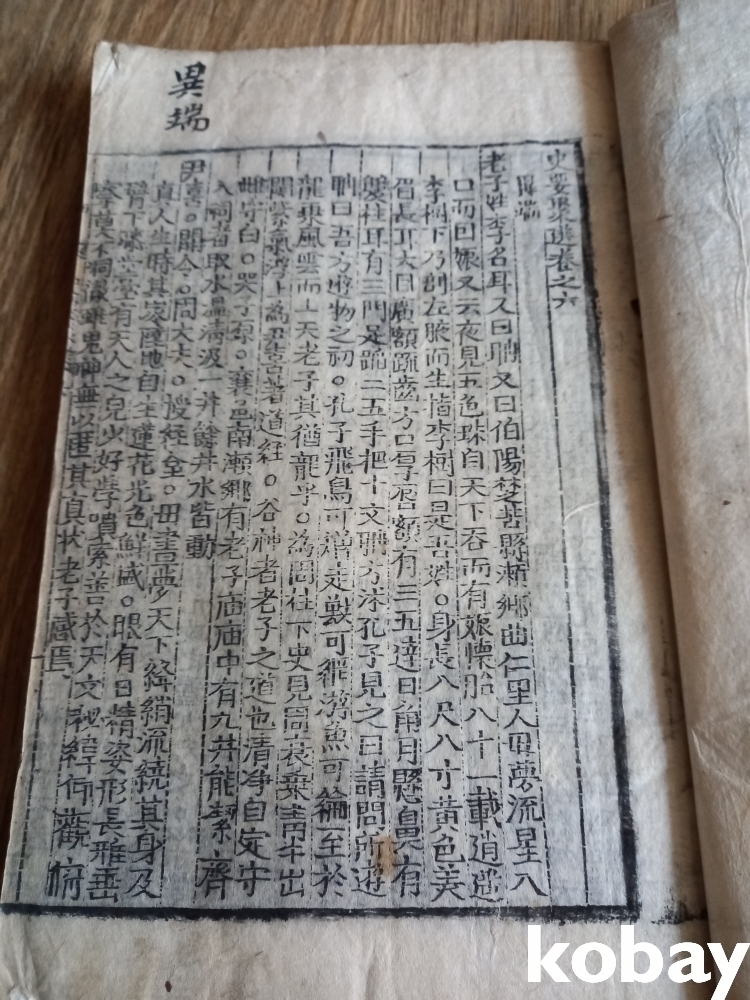 異端
史要聚選卷之六
異端
老子姓李名耳又曰聃又曰伯陽楚苦縣瀬鄉曲仁里人母夢流星入
口而因娠又云夜見五色珠自天下吞而有娠懷胎八十一載逍遙
李樹下乃割左腋而生指李樹曰是吾姓。身長八尺八寸黃色美
眉長耳大目廣額疏齒方口厚唇額有三五達日角月懸鼻有
雙柱耳有三門足蹈二五手把十文聃方沐孔子見之曰請問所遊
聃曰吾方游物之初。孔子飛鳥可矰走獸可網游魚可綸至於
龍乘風雲而上天老子其猶龍乎。為周柱下史見周衰乘青牛出
關紫氣浮上為尹喜著道經。谷神者老子之道也清净自定守
雌守白。哭子原。襄邑南瀬鄉有老子庙庙中有九井能潔齊
入祠者取水溫清汲一井餘井水皆動
尹喜。關令。周大夫。授經臺。母晝夢天下絳綃流繞其身及
真人生時其家陸地自生蓮花光色鮮盛。眼有日精姿形長雅垂
臂下膝堂堂有天人之皃少好學墳索善於天文秘緯仰觀俯
察莫不洞澈雖鬼神無以匿其真狀老子感焉
kobay